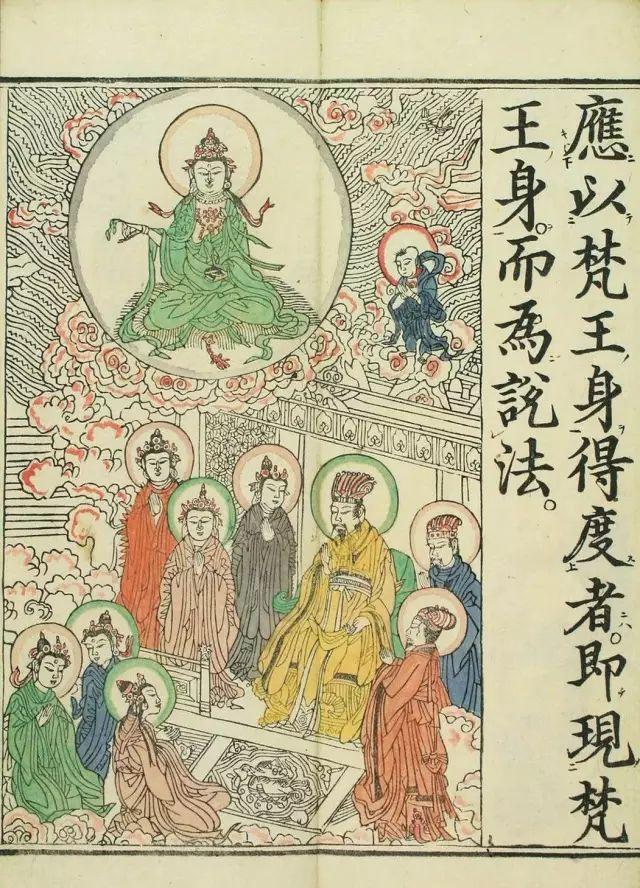 應以梵王身得度者。即現梵
王身。而為說法。